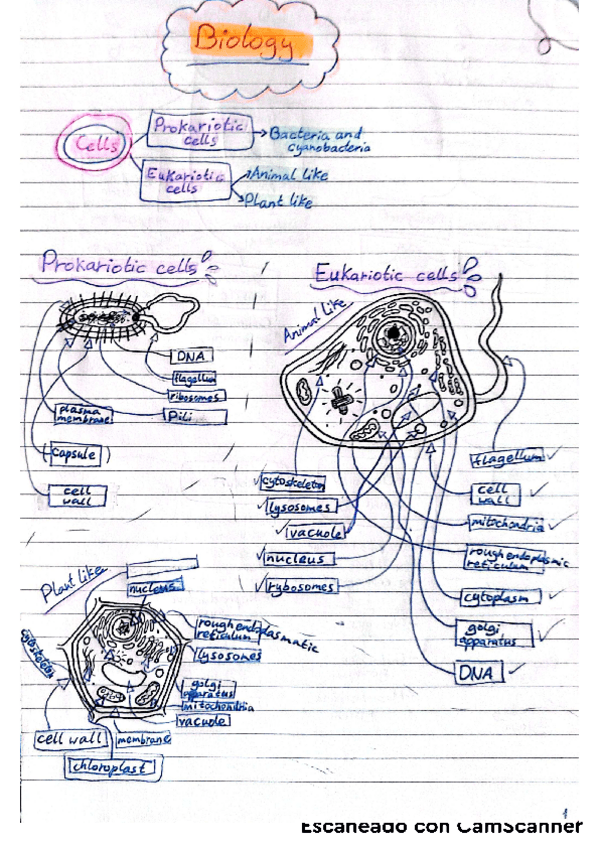 Biology
Cells
Prokariotic
cells
Bacteria and
cyanobacteria
Eukariotic
cells
Animal like
Plant like
Prokariotic cells
Eukariotic cells
Animal Like
DNA
flagellum
ribosomes
Pili
plasma
membrane
(capsule)
cell
wall
cytoskeleton
lysosomes
vacuole
nucleus
rybosomes
flagellum
cell
wall
mitochondria
rough endoplasmic
reticulum
cytoplasm
golgi
apparatus
DNA
Plant like
nucleus
rough endoplasmatic
reticulum
lysosomes
golgi
apparatus
mitochondria
vacuole
cell wall
membrane
chloroplast
1
Escaneado con CamScanner